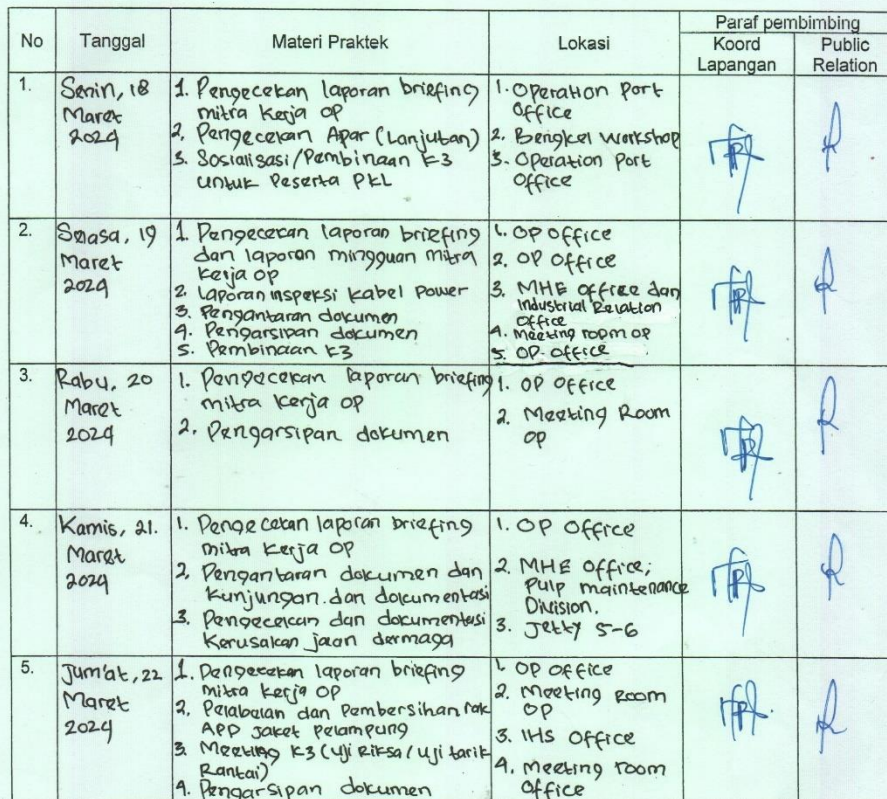 No Tanggal Materi Praktek Lokasi Paraf pembimbing
Koord Lapangan Public Relation
1. Senin, 18 Maret 2024
1. Pengecekan laporan briefing
mitra kerja OP
2. Pengecekan Apar (Lanjutan)
3. Sosialisasi/Pembinaan K3
untuk Peserta PKL
1. Operation Port
Office
2. Bengkel Workshop
3. Operation Port
Office
2. Selasa, 19
Maret
2024
1. Pengecekan laporan briefing
dan laporan mingguan mitra
kerja OP
2. Laporan inspeksi kabel power
3. Pengantaran dokumen
4. Pengarsipan dokumen
5. Pembinaan K3
1. OP Office
2. OP Office
3. MHE Office dan
Industrial Relation
Office
4. Meeting room OP
5. OP Office
3. Rabu, 20
Maret
2024
1. Pengecekan laporan briefing
mitra kerja OP
2. Pengarsipan dokumen
1. OP Office
2. Meeting Room
OP
4. Kamis, 21.
Maret
2024
1. Pengecekan laporan briefing
mitra kerja OP
2. Pengantaran dokumen dan
kunjungan dan dokumentasi
3. Pengecekan dan dokumentasi
kerusakan jalan dermaga
1. OP Office
2. MHE Office;
Pulp maintenance
Division.
3. Jetty 5-6
5. Jum'at, 22
Maret
2024
1. Pengecekan laporan briefing
mitra kerja OP
2. Pelabelan dan Pembersihan rak
APD jaket pelampung
3. Meeting K3 (Uji Riksa/Uji tarik
Rantai)
4. Pengarsipan dokumen
1. OP Office
2. Meeting Room
OP
3. IHS Office
4. Meeting room
Office